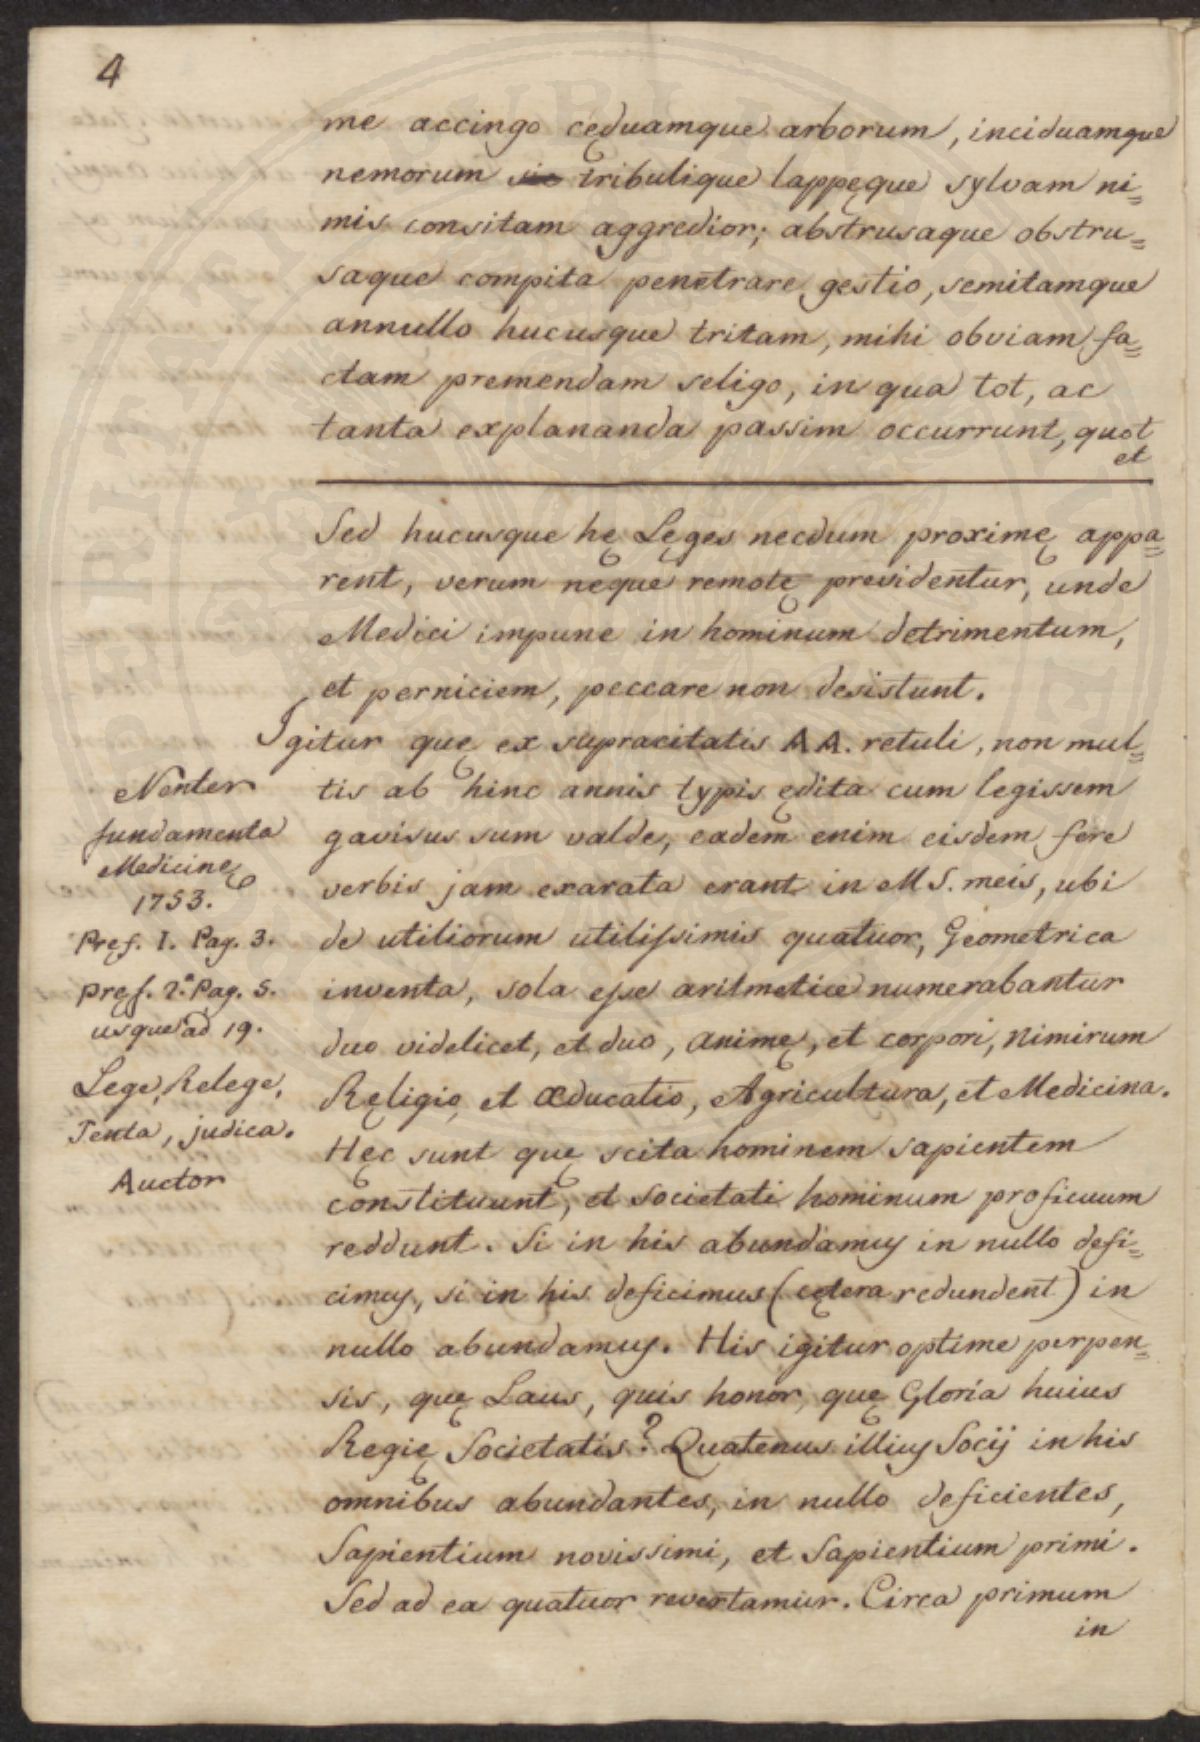 4
me accingo cęduamque arborum, inciduamque
nemorum sic tribulique lappęque sylvam ni=
mis consitam aggredior; abstrusaque obstru=
saque compita penetrare gestio, semitamque
annullo hucusque tritam, mihi obviam fa=
ctam premendam seligo, in qua tot, ac
tanta explananda passim occurrunt, quot
et
Sed hucusque hę Lęges necdum proximę appa=
rent, verum nęque remotę previdentur, unde
Medici impune in hominum detrimentum,
et perniciem, peccare non desistunt.
Igitur quę ex supracitatis AA. retuli, non mul=
tis ab hinc annis typis ędita cum legissem
gavisus sum valde, eadem enim eisdem fere
verbis jam exarata erant in MS. meis, ubi
de utiliorum utilissimis quatuor, Geometrica
inventa, sola esse aritmetice numerabantur
duo videlicet, et duo, animę, et corpori, nimirum
Ręligio et Æducatio, Agricultura, et Medicina.
Hęc sunt quę scita hominem sapientem
constituunt, et societati hominum proficuum
reddunt. Si in his abundamus in nullo defi=
cimus, si in his deficimus (cętera redundent) in
nullo abundamus. His igitur optime perpen=
sis, quę Laus, quis honor, quę Gloria huius
Regię Societatis? Quatenus illius Socij in his
omnibus abundantes, in nullo deficientes,
Sapientium novissimi, et Sapientium primi.
Sed ad ea quatuor revertamur. Circa primum
in
Nenter
fundamenta
Medicinę
1753.
Pręf. I. Pag. 3.
Pręf. 2.ª Pag. 5.
usque ad 19.
Lege, Relege,
Tenta, judica.
Auctor
PUBLICA